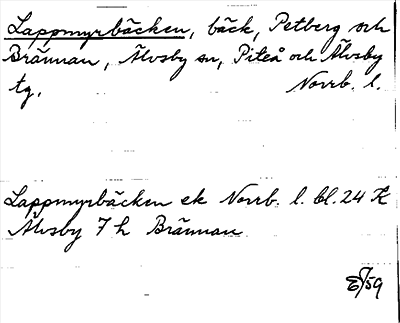 Lappmyrbäcken, bäck, Petberg och
Brännan, Älvsby sn, Piteå och Älvsby
tg. Norrb. l.
Lappmyrbäcken ek Norrb. l. bl. 24 K
Älvsby 7 h Brännan
59